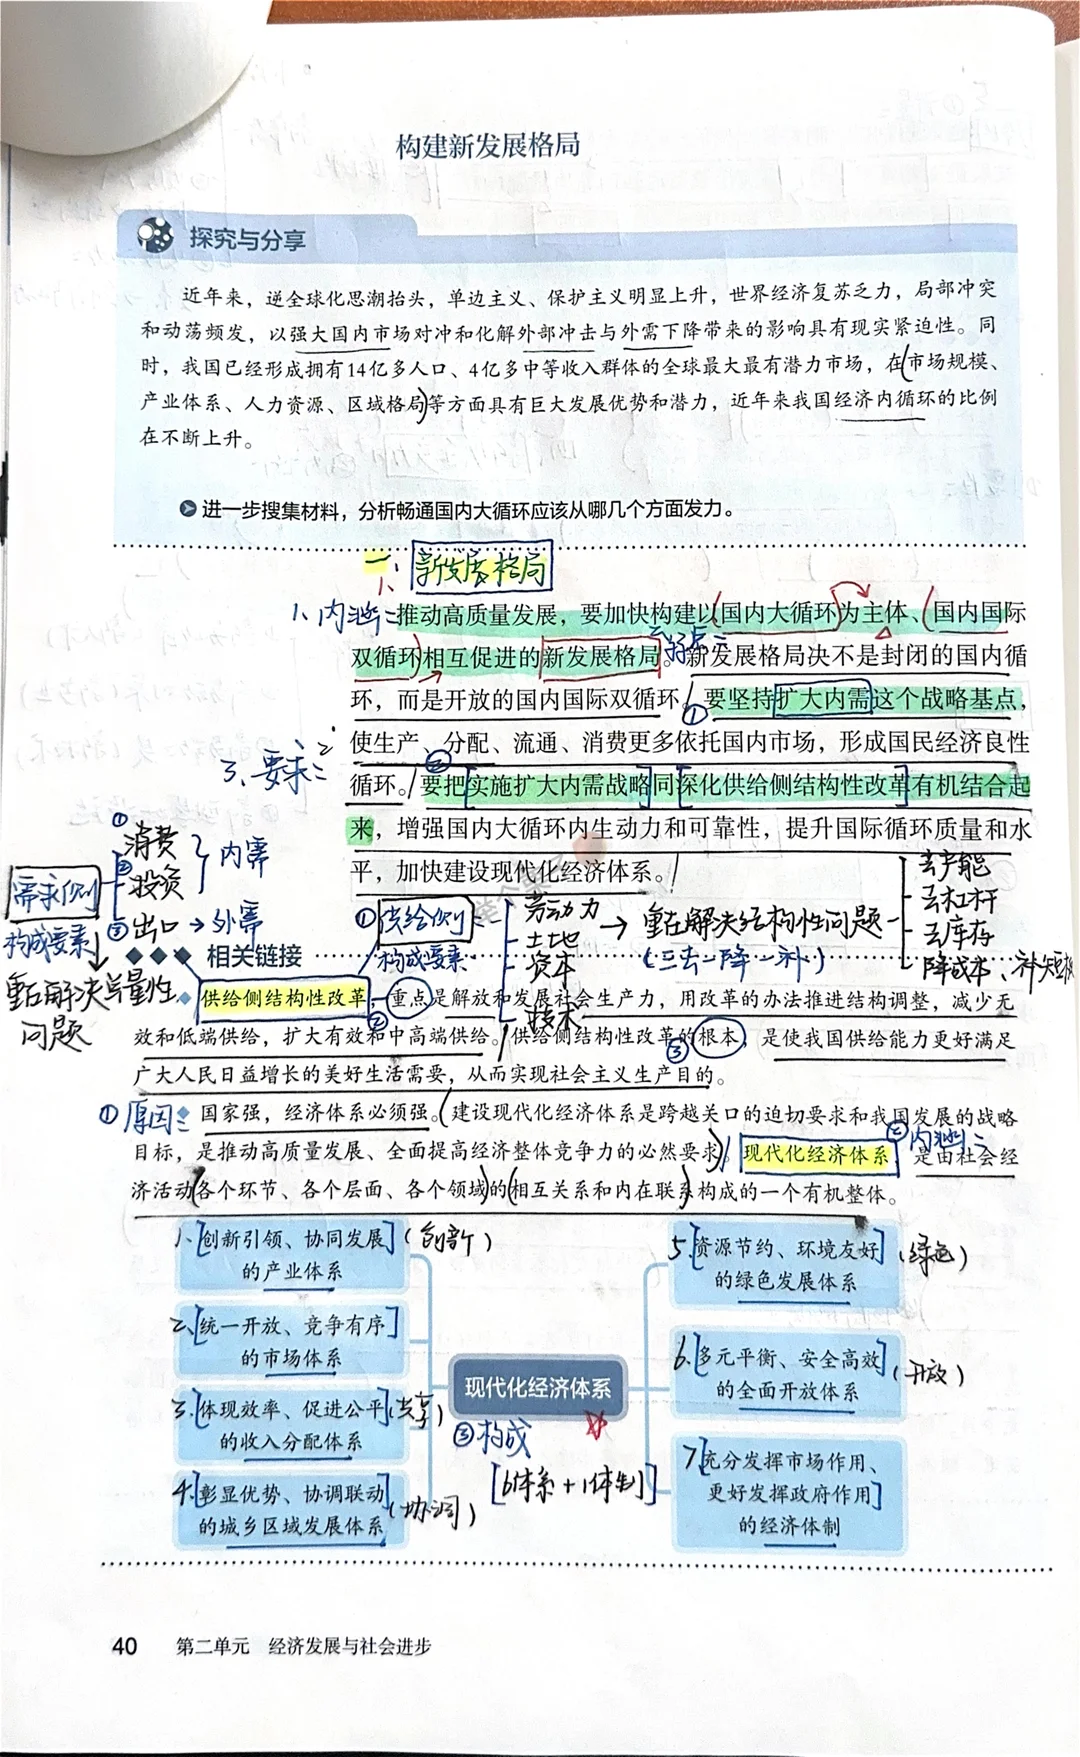 构建新发展格局
探究与分享
近年来，逆全球化思潮抬头，单边主义、保护主义明显上升，世界经济复苏乏力，局部冲突
和动荡频发，以强大国内市场对冲和化解外部冲击与外需下降带来的影响具有现实紧迫性。同
时，我国已经形成拥有14亿多人口、4亿多中等收入群体的全球最大最有潜力市场，在(市场规模、
产业体系、人力资源、区域格局)等方面具有巨大发展优势和潜力，近年来我国经济内循环的比例
在不断上升。
进一步搜集材料，分析畅通国内大循环应该从哪几个方面发力。
一、新发展格局
1、内涵：推动高质量发展，要加快构建以(国内大循环)为主体、(国内国际
双循环)相互促进的新发展格局。特点：新发展格局决不是封闭的国内循
环，而是开放的国内国际双循环。①要坚持扩大内需这个战略基点，
3、要求：使生产、分配、流通、消费更多依托国内市场，形成国民经济良性
循环。/②要把[实施扩大内需战略同[深化供给侧结构性改革]有机结合起
来，增强国内大循环内生动力和可靠性，提升国际循环质量和水
平，加快建设现代化经济体系。/
需求侧
构成要素
①消费
②投资
内需
③出口→外需
重在解决总量性
问题
①供给侧
构成要素
劳动力
土地
资本
技术
→重在解决结构性问题
(三去一降一补)
去产能
去杠杆
去库存
降成本、补短板
相关链接
供给侧结构性改革，重点是解放和发展社会生产力，用改革的办法推进结构调整，减少无
效和低端供给，扩大有效和中高端供给。②供给侧结构性改革的根本，是使我国供给能力更好满足
③
广大人民日益增长的美好生活需要，从而实现社会主义生产目的。
①原因：国家强，经济体系必须强。(建设现代化经济体系是跨越关口的迫切要求和我国发展的战略
目标，是推动高质量发展、全面提高经济整体竞争力的必然要求)。/现代化经济体系②内涵：是由社会经
济活动(各个环节、各个层面、各个领域)的(相互关系和内在联系)构成的一个有机整体。
1、[创新引领、协同发展](创新)
的产业体系
2、[统一开放、竞争有序]
的市场体系
3、[体现效率、促进公平](共享)
的收入分配体系
4、[彰显优势、协调联动](协调)
的城乡区域发展体系
现代化经济体系
③构成
[6体系+1体制]
5、[资源节约、环境友好](绿色)
的绿色发展体系
6、[多元平衡、安全高效](开放)
的全面开放体系
7、[充分发挥市场作用、
更好发挥政府作用]
的经济体制
40 第二单元 经济发展与社会进步